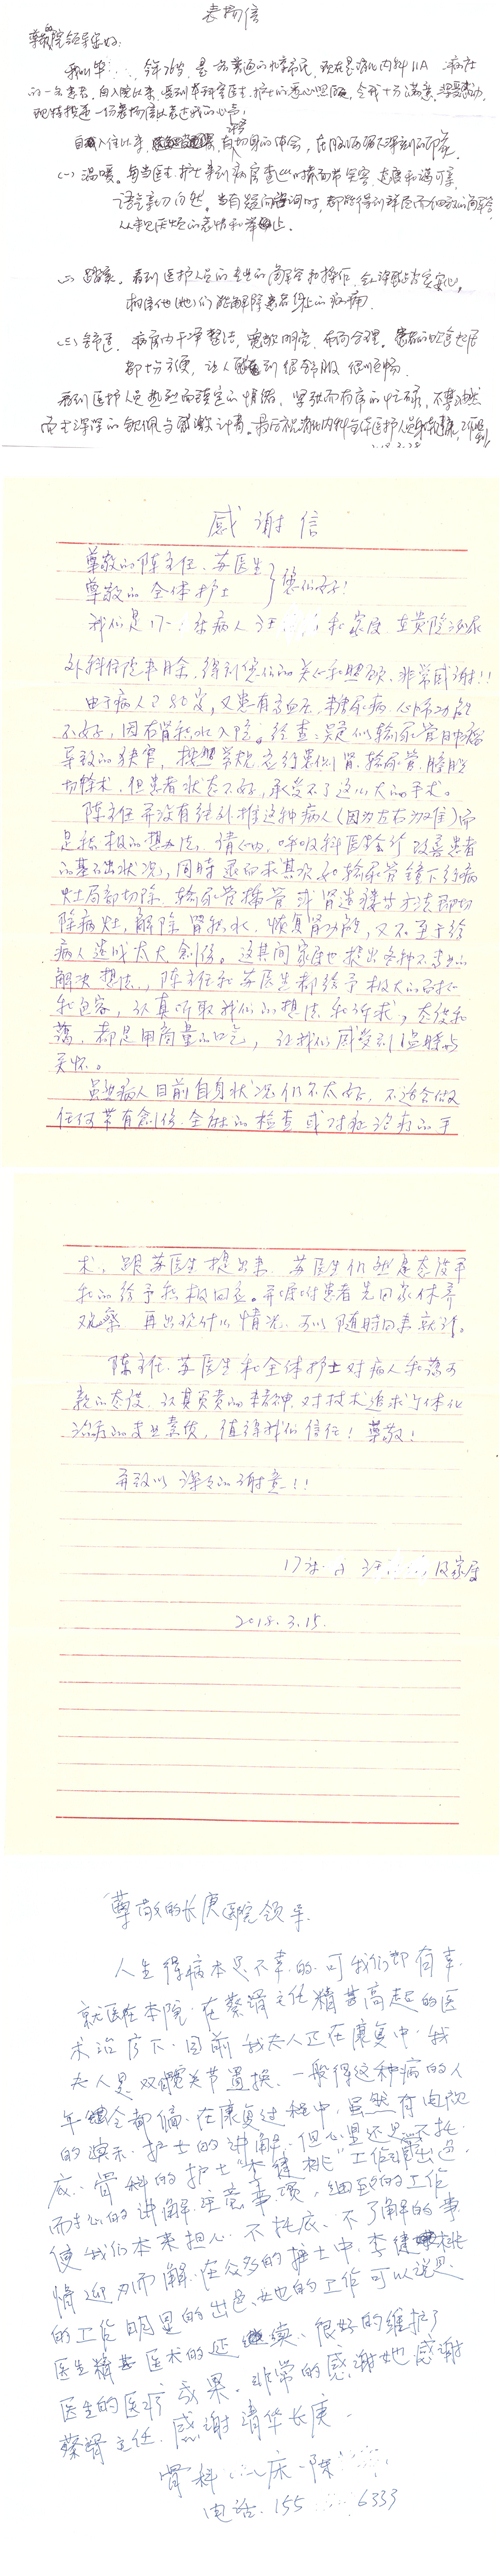 表扬信
尊敬的院领导您好:
我叫毕 今年76岁,是一名普通的北京市民,现在是消化内科11A 病房
的一名患者,自入院以来,受到本科室医生、护士的悉心照顾,令我十分满意,非常感动,
现特投递一份表扬信以表达我的心意。
自入住以来, 有切身的体会,在脑海留下深刻的印象。
(一) 温暖。每当医生、护士来到病房查巡时,都面带笑容,态度和蔼可亲,
语言亲切自然。当有疑问咨询时,都能得到详尽而细致的解答
从未见厌烦的表情和举止。
(二) 踏实。看到医护人员的专业的解答和操作,令我感与安心,
相信他(她)们能解除患者身上的病痛。
(三) 舒适。病房内干净整洁,宽敞明亮,布局合理。患者的饮食起居
都十分方便,让人感到很舒服、很顺畅。
看到医护人员热烈而稳定的情绪,紧张而有序的忙碌,不尊
而生深深的钦佩与感激之情。最后祝消化内科全体医护人员身体健康,
感谢信
尊敬的陈主任、苏医生
尊敬的全体护士 您们好!
我们是17- 床病人汪 和家属,在贵院泌尿
外科住院半月余,得到您们的关心和照顾,非常感谢!!
由于病人已80岁,又患有高血压、糖尿病、心肺功能
不好,因右肾积水入院。经查:疑似输尿管肿瘤
导致的狭窄,按照常规,应行患侧肾、输尿管、膀胱
切除术,但患者状态不好,承受不了这么大的手术。
陈主任并没有往外推这种病人(因为左右为难)而
是积极的想办法,请心内,呼吸科医生会诊,改善患者
的基础状况,同时退而求其次,如输尿管镜下行病
灶局部切除、输尿管插管或肾造瘘等方法,即切
除病灶,解除肾积水,恢复肾功能,又不至于给
病人造成太大创伤。这其间家属也提出各种不专业的
解决想法,陈主任和苏医生都给予极大的包容
和包容,认真听取我们的想法和诉求,态度和
蔼,都是用商量的口气,让我们感受到温暖与
关怀。
虽然病人目前自身状况仍不太好,不适合做
任何带有创伤、全麻的检查或对症治疗的手
术,跟苏医生提出来,苏医生仍然是态度平
和的给予积极回应。并嘱咐患者先回家休养
观察,再出现什么情况,可以随时回来就诊。
陈主任、苏医生和全体护士对病人和蔼可
亲的态度、认真负责的精神、对技术追求个体化
治疗的专业素质,值得我们信任!尊敬!
并致以深深的谢意!!
17床- 汪 及家属
2018.3.15.
尊敬的长庚医院领导
人生得病本是不幸的,可我们却有幸
就医在本院,在蔡谞主任精甚高超的医
术治疗下,目前我夫人正在康复中,我
夫人是双髋关节置换,一般得这种病的人
年龄全都偏,在康复过程中,虽然有电视
的演示,护士的讲解,但心里还是不托
底,骨科的护士“李健桃”工作非出色,
而耐心的讲解注意事项,细致的工作
使我们本来担心、不托底、不了解的事
情迎刃而解,在众多的护士中,李健桃
的工作明显的出色,她的工作可以说是
医生精甚医术的延续,很好的维护了
医生的医疗成果。非常的感谢她,感谢
蔡谞主任,感谢清华长庚。
骨科 床、陈
电话.155 6333